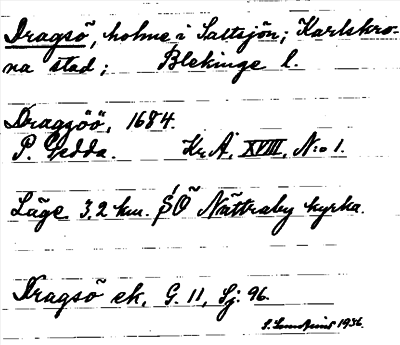 Dragsö, holme i Saltsjön; Karlskro-
na stad; Blekinge l.
Draggöö, 1684.
P. Gedda. Kr.A. XVIII, N:o 1.
Läge 3,2 km. SO Nättraby kyrka.
Dragsö ek. G. 11, Sj: 96.
1936.